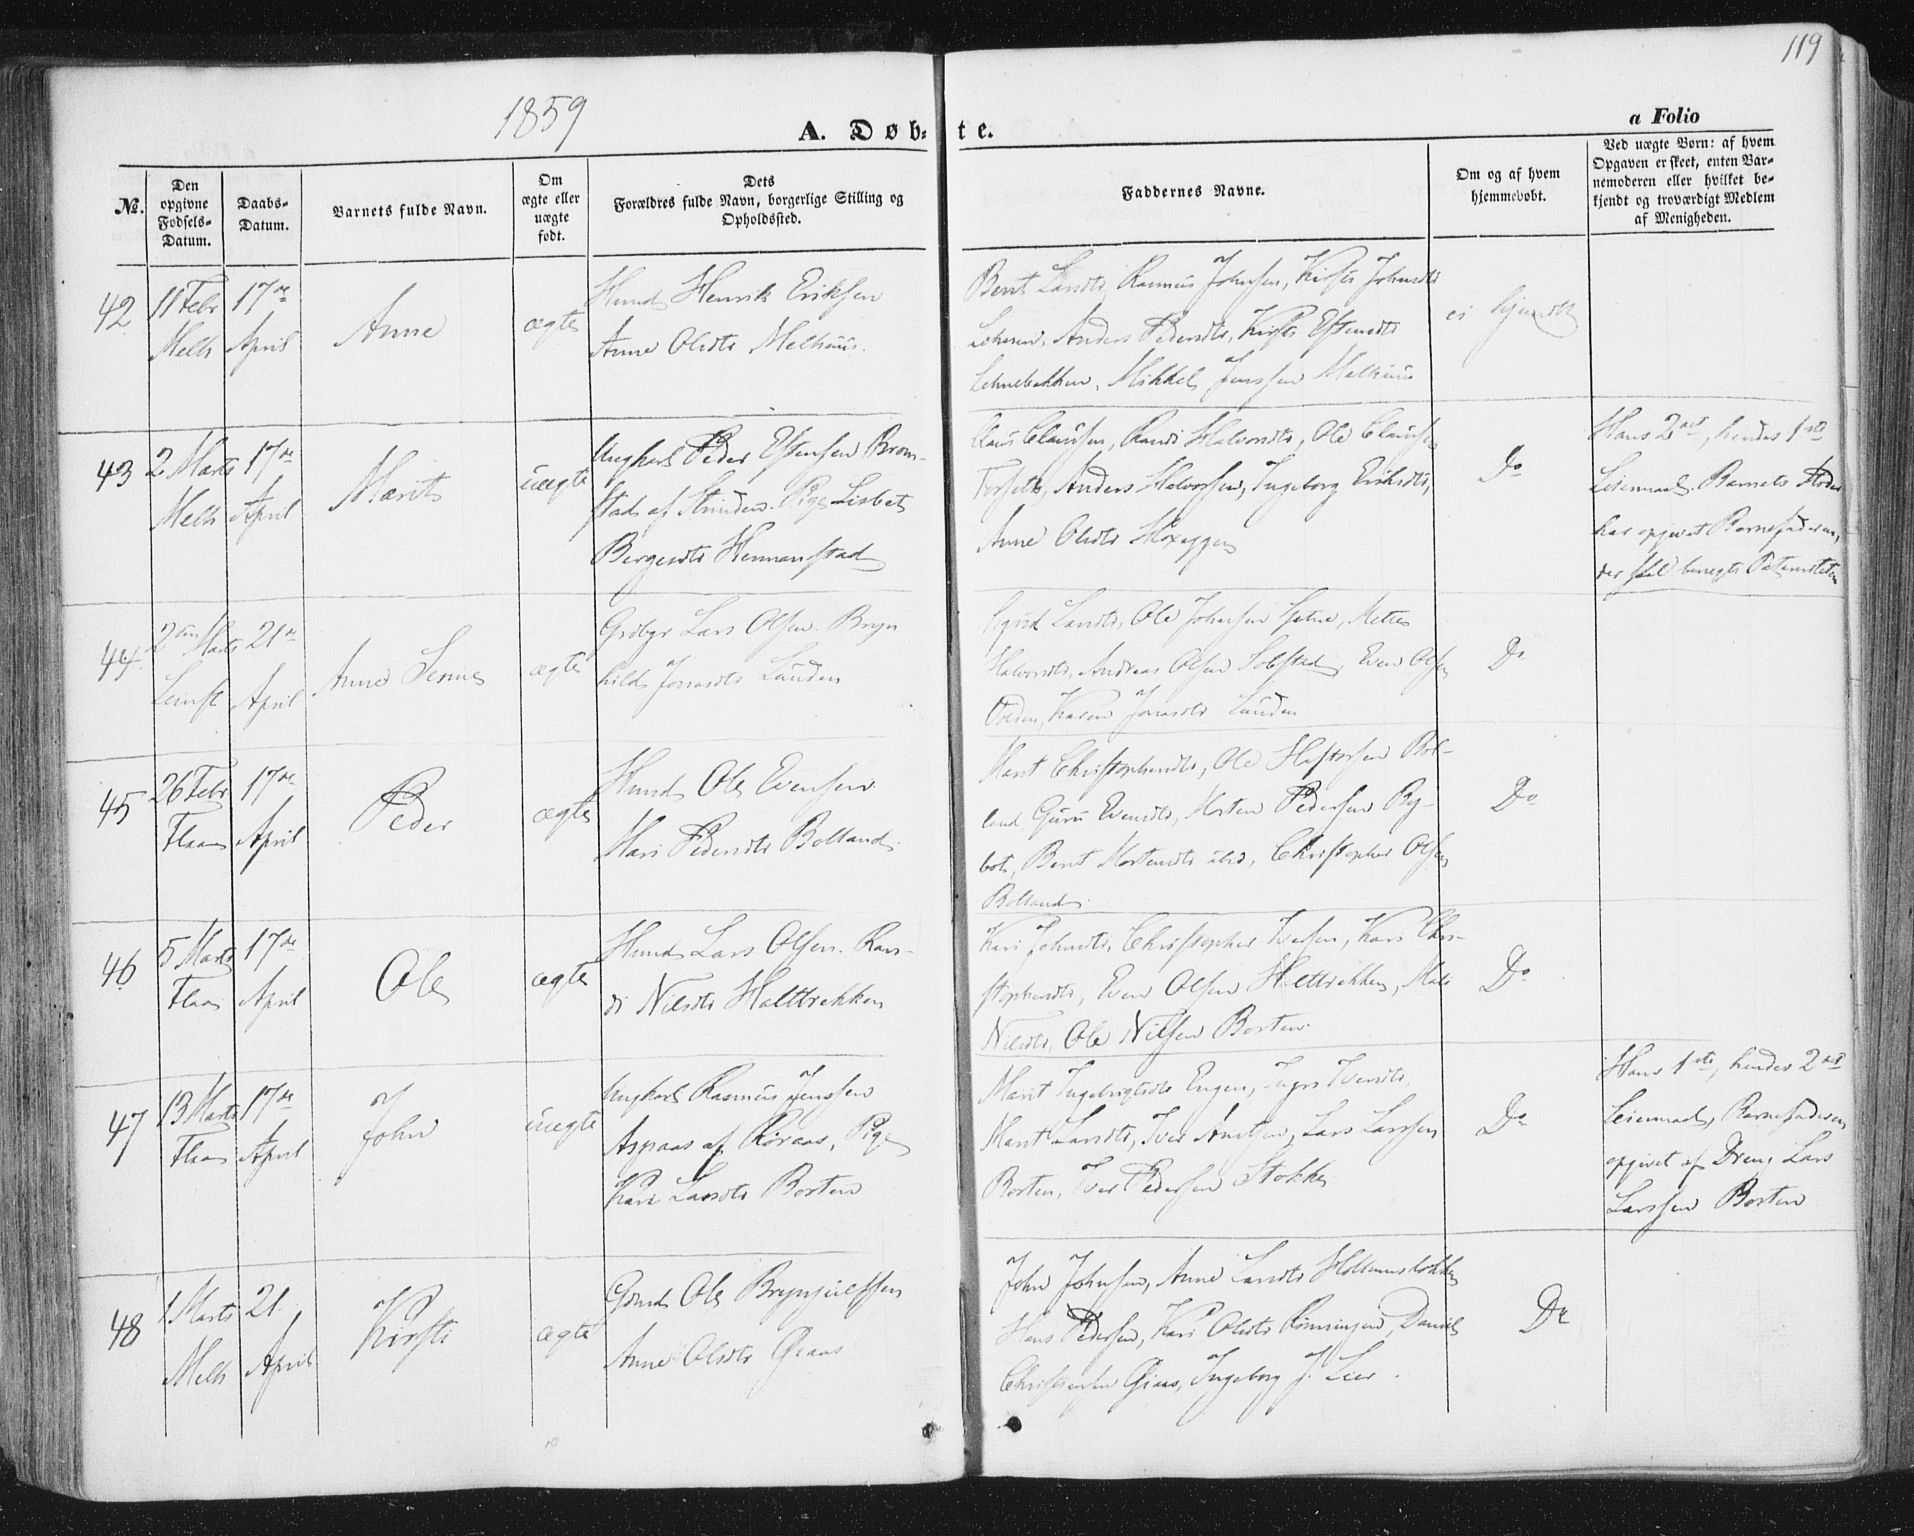 119
1859
A. Døb-te.
a Folio
No.
Den opgivne Fødsels-Datum.
Daabs-Datum.
Barnets fulde Navn.
Om ægte eller uægte født.
Dets Forældres fulde Navn, borgerlige Stilling og Opholdssted.
Faddernes Navne.
Om og af hvem hjemmedøbt.
Ved uægte Børn: af hvem Opgaven er skeet, enten Barnemoderen eller hvilket bekjendt og troværdigt Medlem af Menigheden.
42
11 Febr
Melh
17de
April
Anne
ægte
Huusm Henrik Eriksen
Anne Olsdtr Melhuus.
Berit Larsdtr, Rasmus Johnsen, Kirsti Johnsdtr
Anders Pedersdtr, Kirsti Estensdtr
Mikkel Jenssen Melhuus
ei hjemdbt
43
2 Marts
Melh
17de
April
Marit
uægte
Ungkarl Peder Estensen Brom-
stad af Strinden. Pige Lisbet
Bergesdtr Hermanstad
Claus Claussen, Randi Halvorsdtr, Ole Claussen
Anders Halvorsen, Ingeborg Eriksdtr,
Anne Olsdtr
Do
Hans 2det, hendes 1ste
Leiermaal. Barnets Moder
har opgivet Barnefaderen,
der skal benegte Paterniteten
44
2den Marts
Leinst
21de
April
Anne
ægte
Grdbgr Lars Olsen. Bryn
hild Jonasdtr Lunden
Sigrid Larsdtr, Ole Johnsen Sætne, Mette
Halvorsdtr, Andreas Olsen Solstad, Even Olsen
Karen Jonasdtr Lunden
Do
45
26 Febr
Flaa
17de
April
Peder
ægte
Huusm Ole Evensen
Mari Pedersdtr Bolland.
Marit Christophersdtr, Ole
land Guru Evensdtr, Morten Pedersen Ry-
bot, Berit Mortensdtr ibid, Christopher Olsen
Bolland.
Do
46
5 Marts
Flaa
17de
April
Ole
ægte
Huusm Lars Olsen. Ran-
di Nilsdtr Halttrekken
Kari Johnsdtr, Christopher Iversen, Kari Chri-
stophersdtr, Even Olsen Halttrekken, Mali
Nilsdtr, Ole Nilsen Borten.
Do
47
13 Marts
Flaa
17de
April
John
uægte
Ungkarl Rasmus Jenssen
Aspaas af Røraas, Pige
Kari Larsdtr Borten
Marit Ingebrigtsdtr Engen, Ingri Iversdtr
Marit Larsdtr, Iver Arntsen, Lars Larssen
Borten, Iver Pedersen Stokke
Do
Hans 1ste, hendes 2det
Leiermaal, Barnefaderen
opgivet af Dreng Lars
Larssen Borten
48
1 Marts
Melh
21
April
Kirsti
ægte
Grdmd Ole Brynjulfsen
Anne Olsdtr Graas
John Johnsen, Anne Larsdtr
Hans Pedersen, Kari Olsdtr Rønningen, Daniel
Christensen Graas, Ingeborg J. Leer.
Do